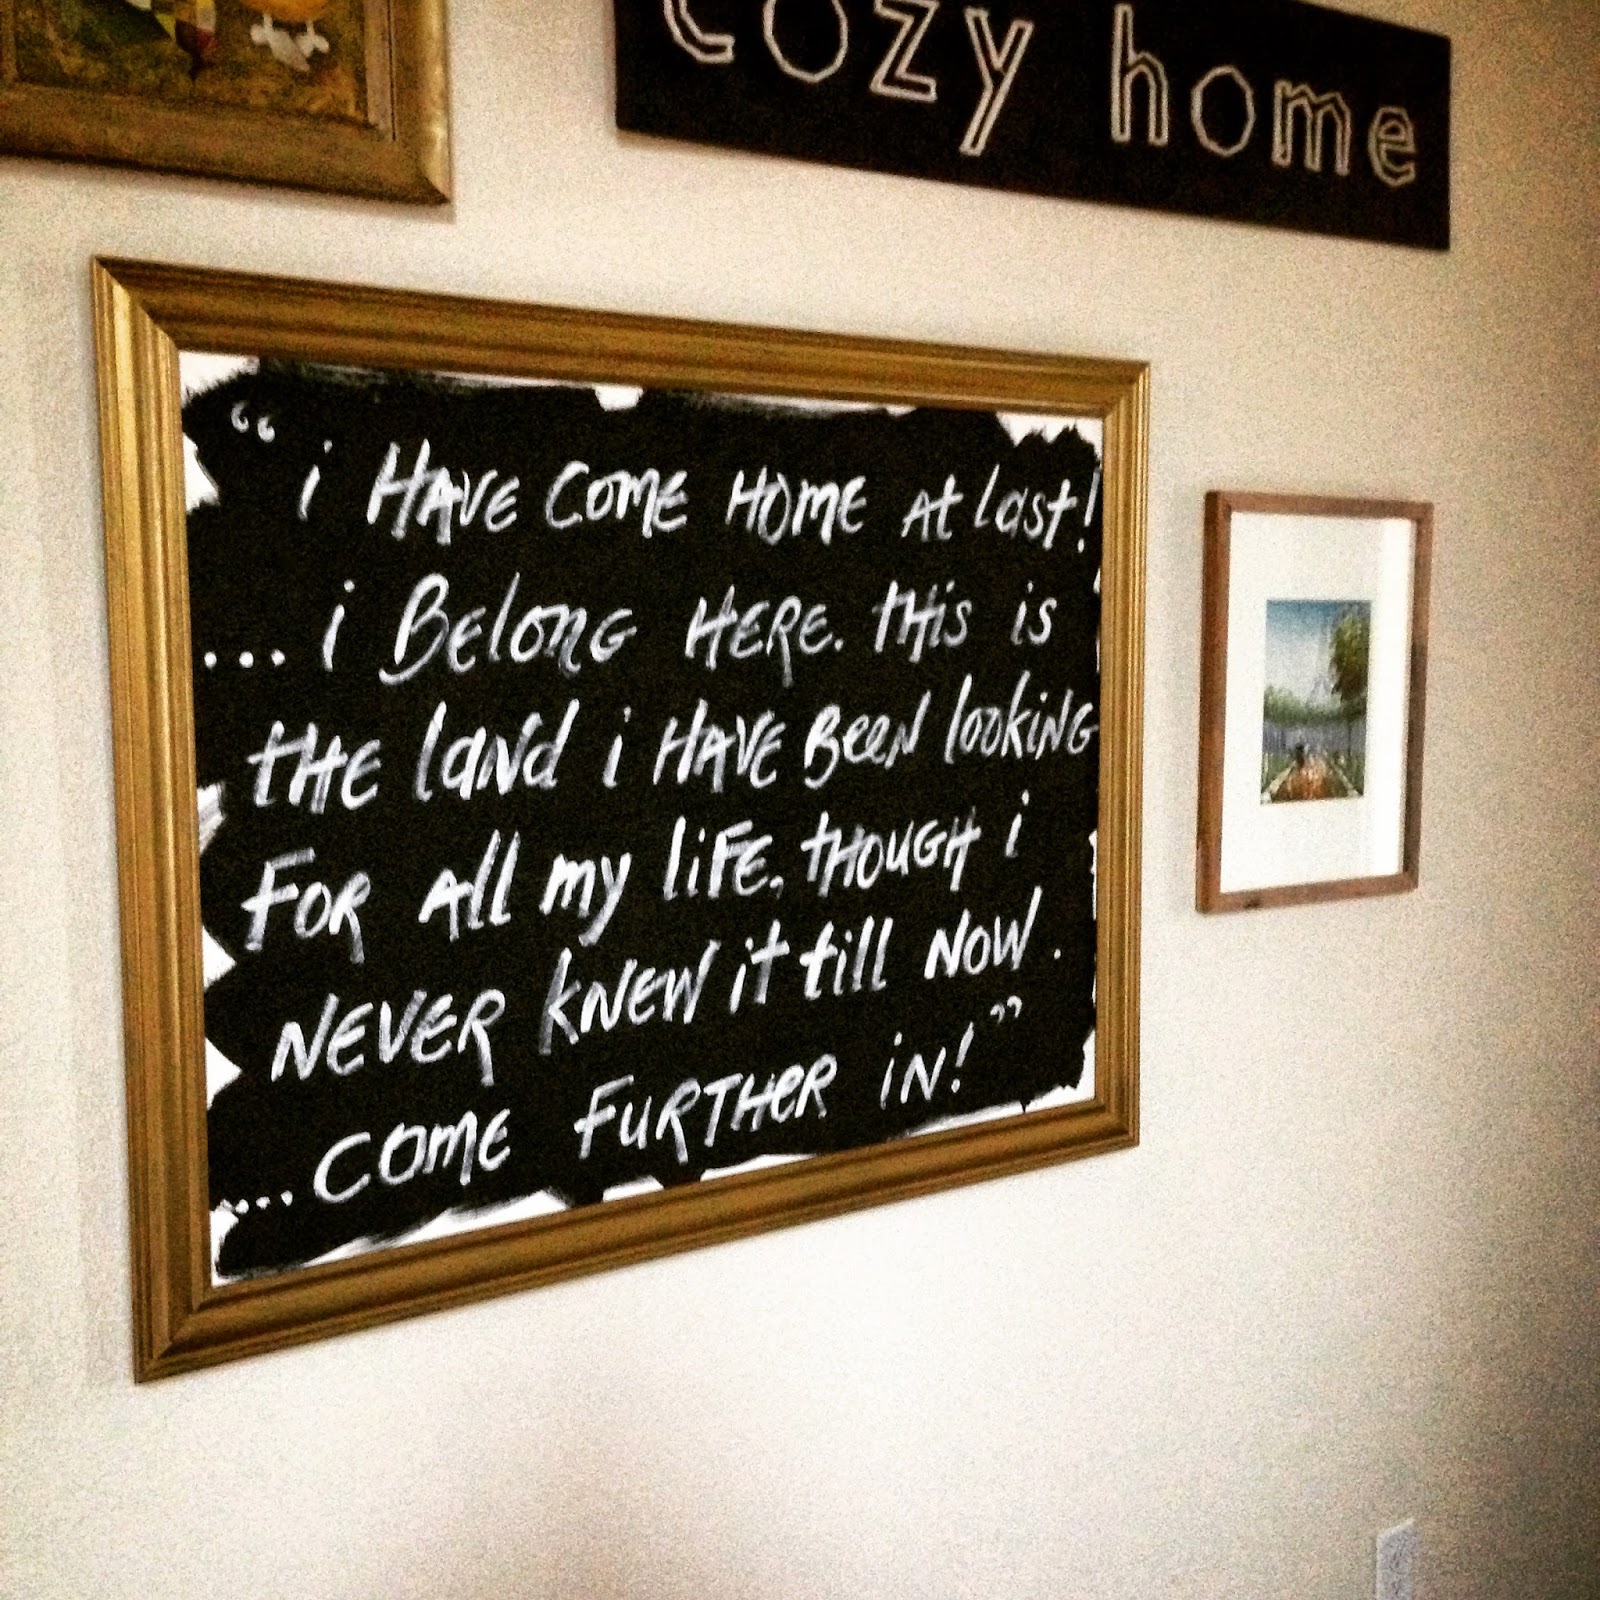 cozy home
“i HAVE COME HOME At last!
...i BElONG HERE. tHis is
tHE laNd i HAVE BEEN lookiNG
FOR All my liFE, tHOUGH i
NEVER kNEW it till NOW.
....COME FURTHER iN!”